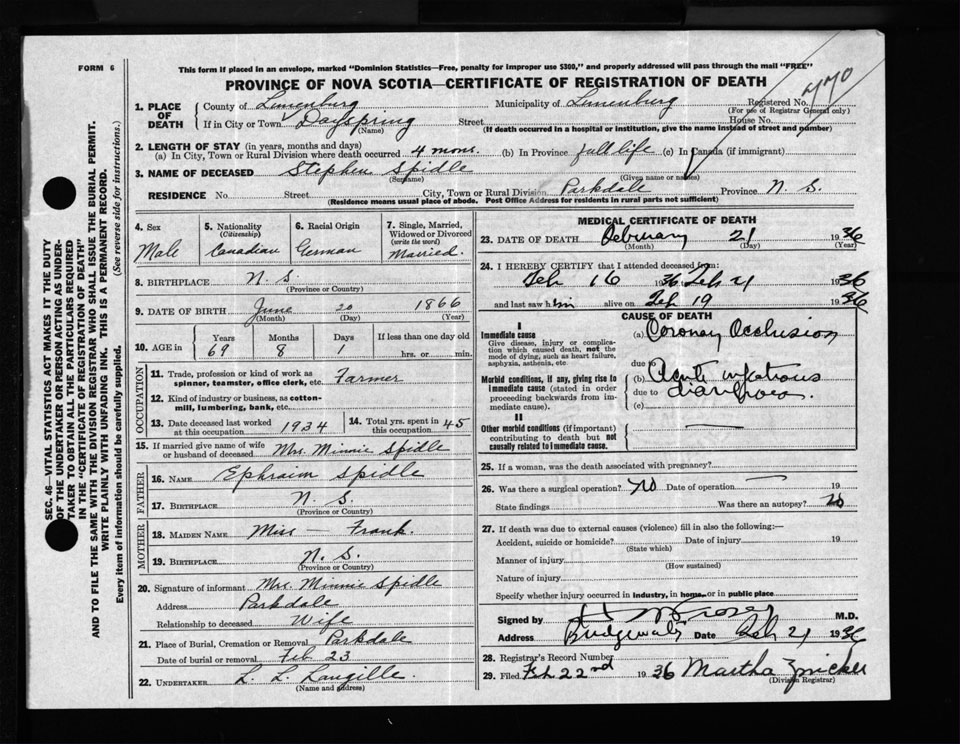 FORM 6
This form if placed in an envelope, marked "Dominion Statistics—Free, penalty for improper use $300," and properly addressed will pass through the mail "FREE"
PROVINCE OF NOVA SCOTIA—CERTIFICATE OF REGISTRATION OF DEATH
470
1. PLACE OF DEATH
County of Lunenburg Municipality of Lunenburg Registered No.
(For use of Registrar General only)
If in City or Town Dayspring Street House No.
(Name) (If death occurred in a hospital or institution, give the name instead of street and number)
2. LENGTH OF STAY (in years, months and days)
(a) In City, Town or Rural Division where death occurred 4 mons. (b) In Province full life (c) In Canada (if immigrant)
3. NAME OF DECEASED Stephen Spidle
(Surname) (Given name or names)
RESIDENCE No. Street City, Town or Rural Division Parkdale Province N. S.
(Residence means usual place of abode. Post Office Address for residents in rural parts not sufficient)
4. Sex
Male
5. Nationality
(Citizenship)
Canadian
6. Racial Origin
German
7. Single, Married, Widowed or Divorced
(write the word)
Married.
8. BIRTHPLACE N. S.
(Province or Country)
9. DATE OF BIRTH June 20 1866
(Month) (Day) (Year)
10. AGE in
Years Months Days If less than one day old
69 8 1 hrs. or min.
OCCUPATION
11. Trade, profession or kind of work as
spinner, teamster, office clerk, etc. Farmer
12. Kind of industry or business, as cotton-
mill, lumbering, bank, etc.
13. Date deceased last worked
at this occupation 1934
14. Total yrs. spent in
this occupation 45
15. If married give name of wife
or husband of deceased Mrs. Minnie Spidle
FATHER
16. NAME Ephraim Spidle
17. BIRTHPLACE N. S.
(Province or Country)
MOTHER
18. MAIDEN NAME Miss Frank.
19. BIRTHPLACE N. S.
(Province or Country)
20. Signature of informant Mrs. Minnie Spidle
Address Parkdale
Relationship to deceased Wife
21. Place of Burial, Cremation or Removal Parkdale
Date of burial or removal Feb 23
22. UNDERTAKER L. L. Langille.
(Name and address)
MEDICAL CERTIFICATE OF DEATH
23. DATE OF DEATH February 21 1936
(Month) (Day) (Year)
24. I HEREBY CERTIFY that I attended deceased from:
Feb 16 1936 Feb 21 1936
and last saw him alive on Feb 19 1936
CAUSE OF DEATH
I
Immediate cause
Give disease, injury or complica-
tion which caused death, not the
mode of dying, such as heart failure,
asphyxia, asthenia, etc
(a) Coronary Occlusion
due to
Morbid conditions, if any, giving rise to
immediate cause (stated in order
proceeding backwards from im-
mediate cause).
(b) Acute infectious
due to diarrhoea.
(c)
II
Other morbid conditions (if important)
contributing to death but not
causally related to immediate cause.
25. If a woman, was the death associated with pregnancy?
26. Was there a surgical operation? No Date of operation 19
State findings Was there an autopsy? No
27. If death was due to external causes (violence) fill in also the following:—
Accident, suicide or homicide? Date of injury 19
(State which)
Manner of injury
(How sustained)
Nature of injury
Specify whether injury occurred in industry, in home, or in public place
Signed by M.D.
Address Bridgewater Date Feb 21 1936
28. Registrar's Record Number
29. Filed Feb 22nd 1936 Martha Zwicker
(Division Registrar)
SEC. 46—VITAL STATISTICS ACT MAKES IT THE DUTY
OF THE UNDERTAKER OR PERSON ACTING AS UNDER-
TAKER TO OBTAIN ALL THE PARTICULARS REQUIRED
IN THE "CERTIFICATE OF REGISTRATION OF DEATH"
AND TO FILE THE SAME WITH THE DIVISION REGISTRAR WHO SHALL ISSUE THE BURIAL PERMIT.
WRITE PLAINLY WITH UNFADING INK. THIS IS A PERMANENT RECORD.
Every item of information should be carefully supplied. (See reverse side for instructions.)